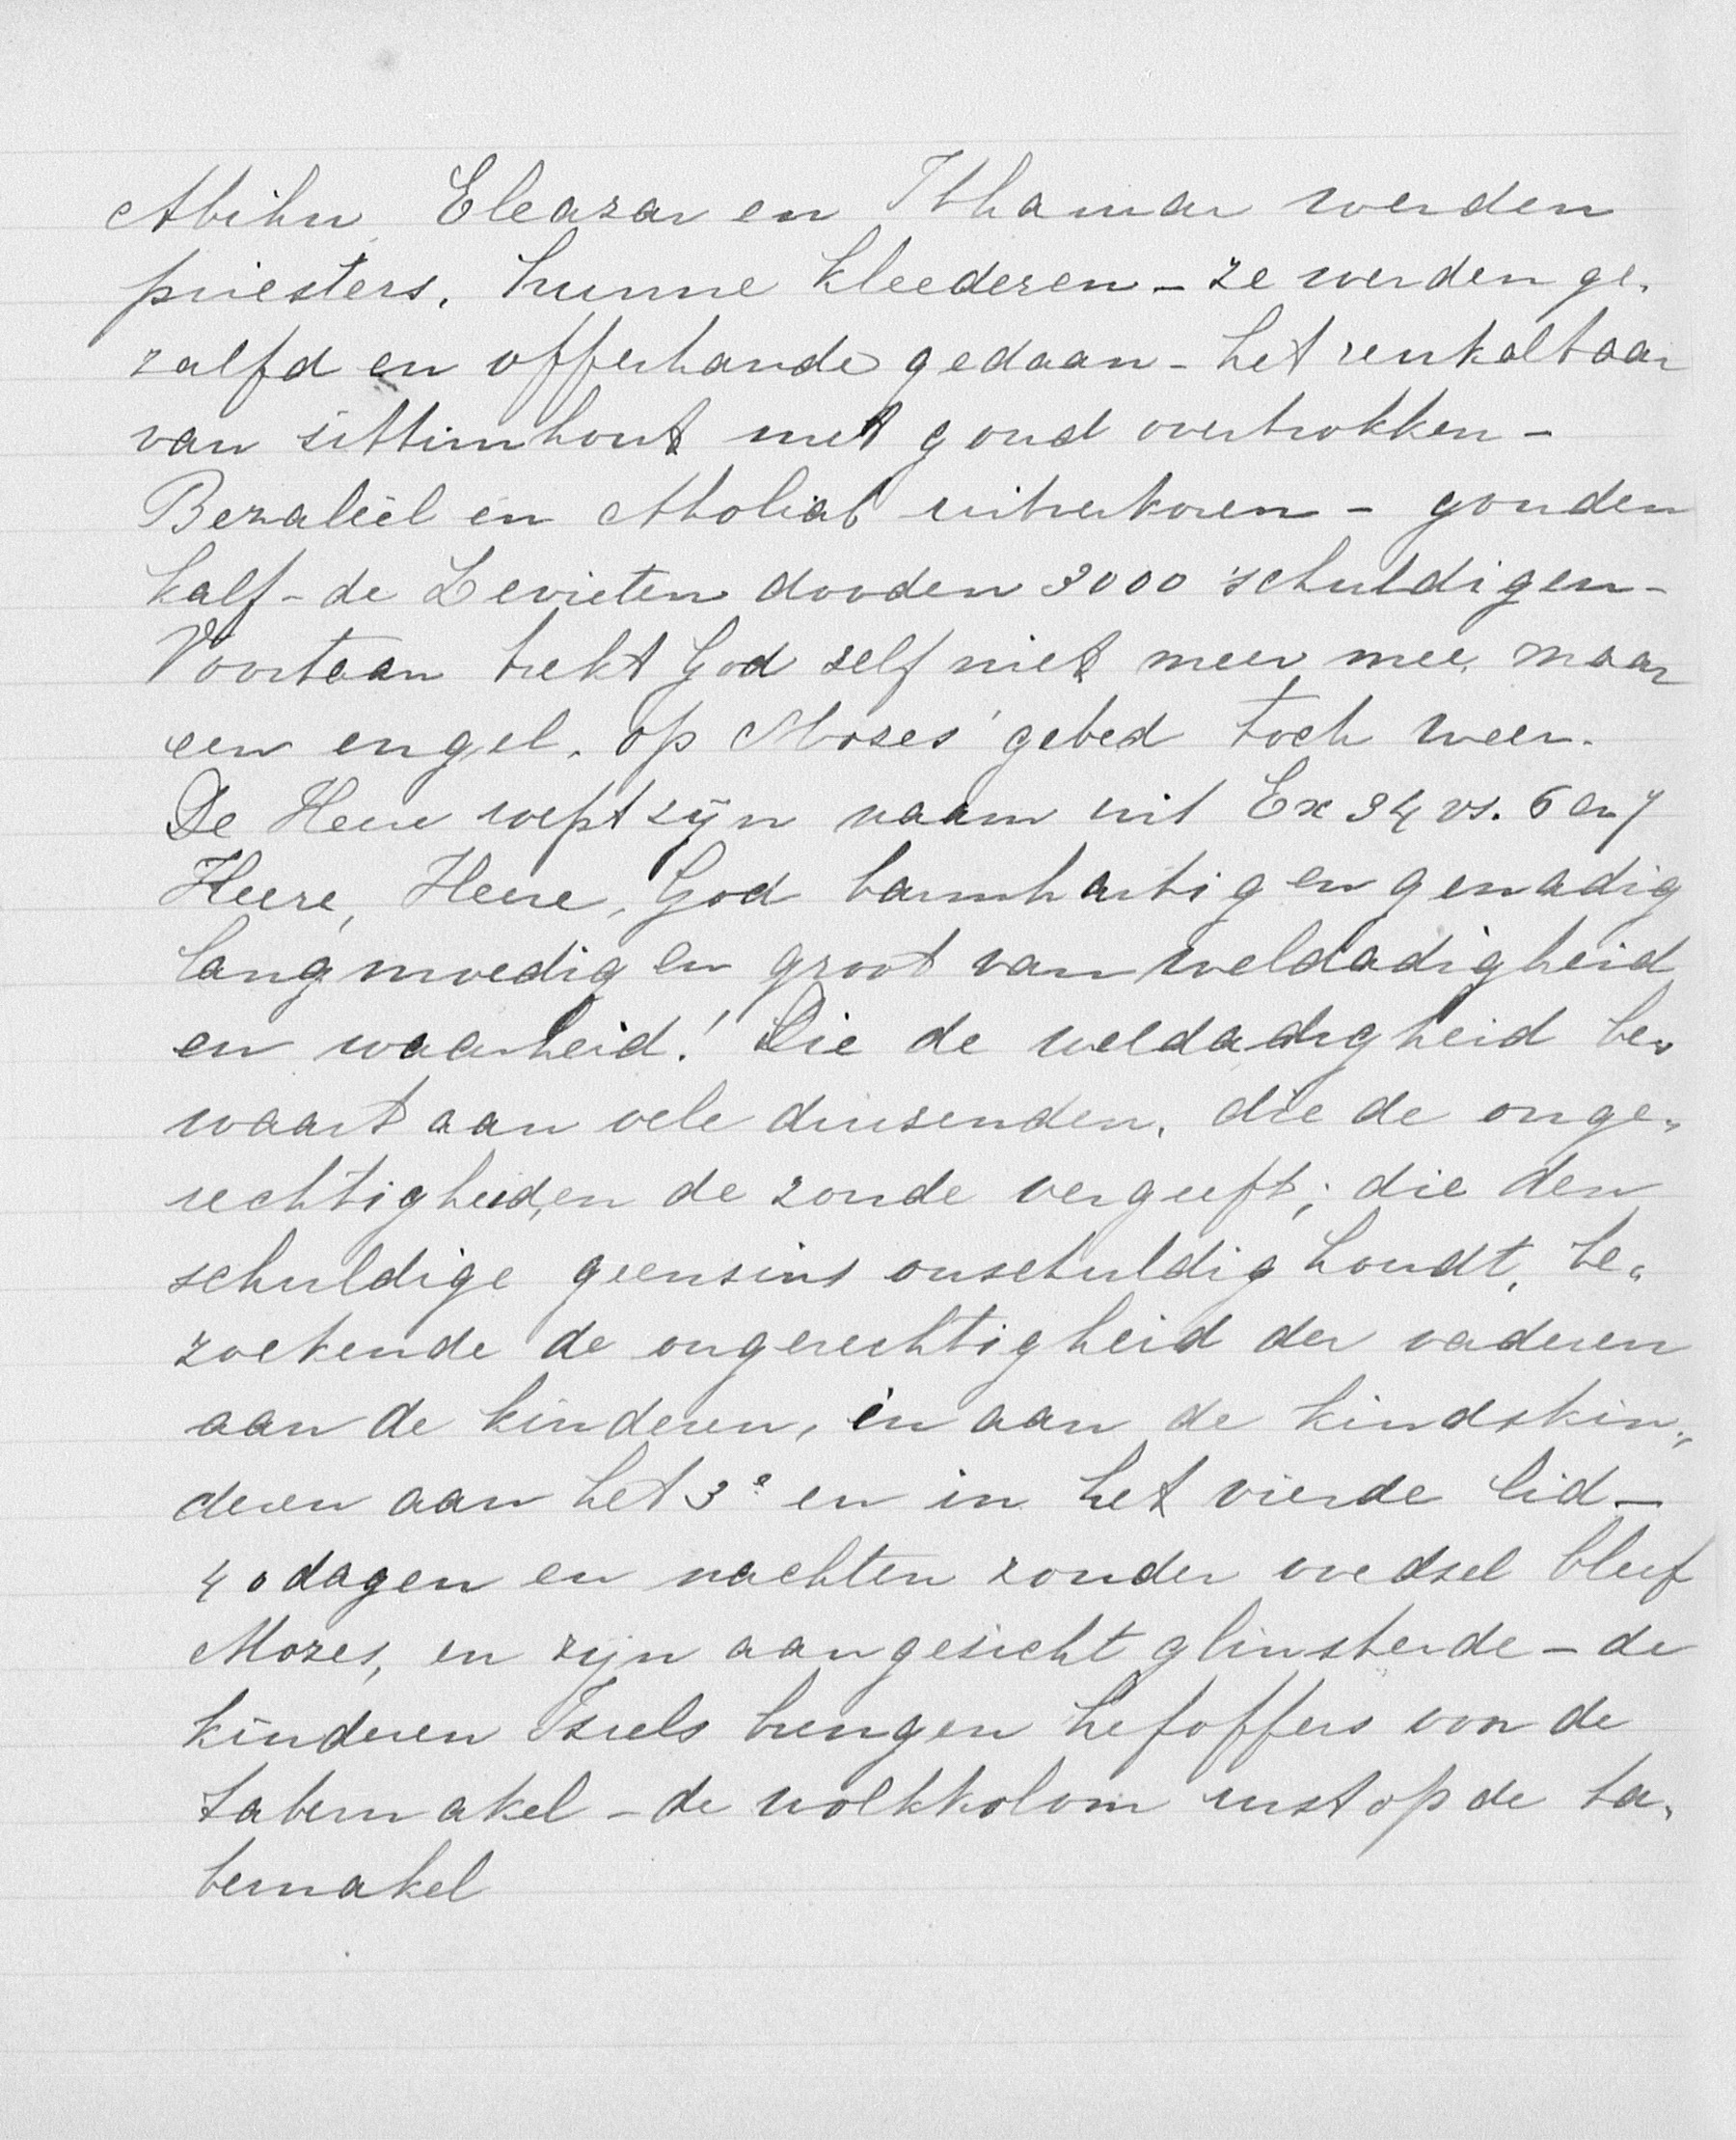 Abihu, Eleazar en Ithamar werden
priesters, hunne kleederen - ze werden ge„
zalfd en offerhande gedaan - het reukaltaar
van sittimhout met goud overtrokken -
Bezaleël en Aholiab uitverkoren - gouden
kalf - de Levieten dooden 3000 schuldigen -
Voortaan trekt God zelf niet meer mee, maar
een engel, op Mozes' gebed toch weer.
De Heere roept zijn naam uit Ex 34 vs. 6 en 7
Heere, Heere, God barmhartig en genadig
langmoedig en groot van weldadigheid
en waarheid! Die de weldadigheid be„
waart aan vele duizenden, die de onge„
rechtigheid, en de zonde vergeeft; die den
schuldige geenzins onschuldig houdt, be„
zoekende de ongerechtigheid der vaderen
aan de kinderen, en aan de kindskin„
deren aan het 3e en in het vierde lid -
40 dagen en nachten zonder voedsel bleef
Mozes, en zijn aangezicht glinsterde - de
kinderen Isrels brengen hefoffers voor de
tabernakel - de wolkkolom rust op de ta„
bernakel